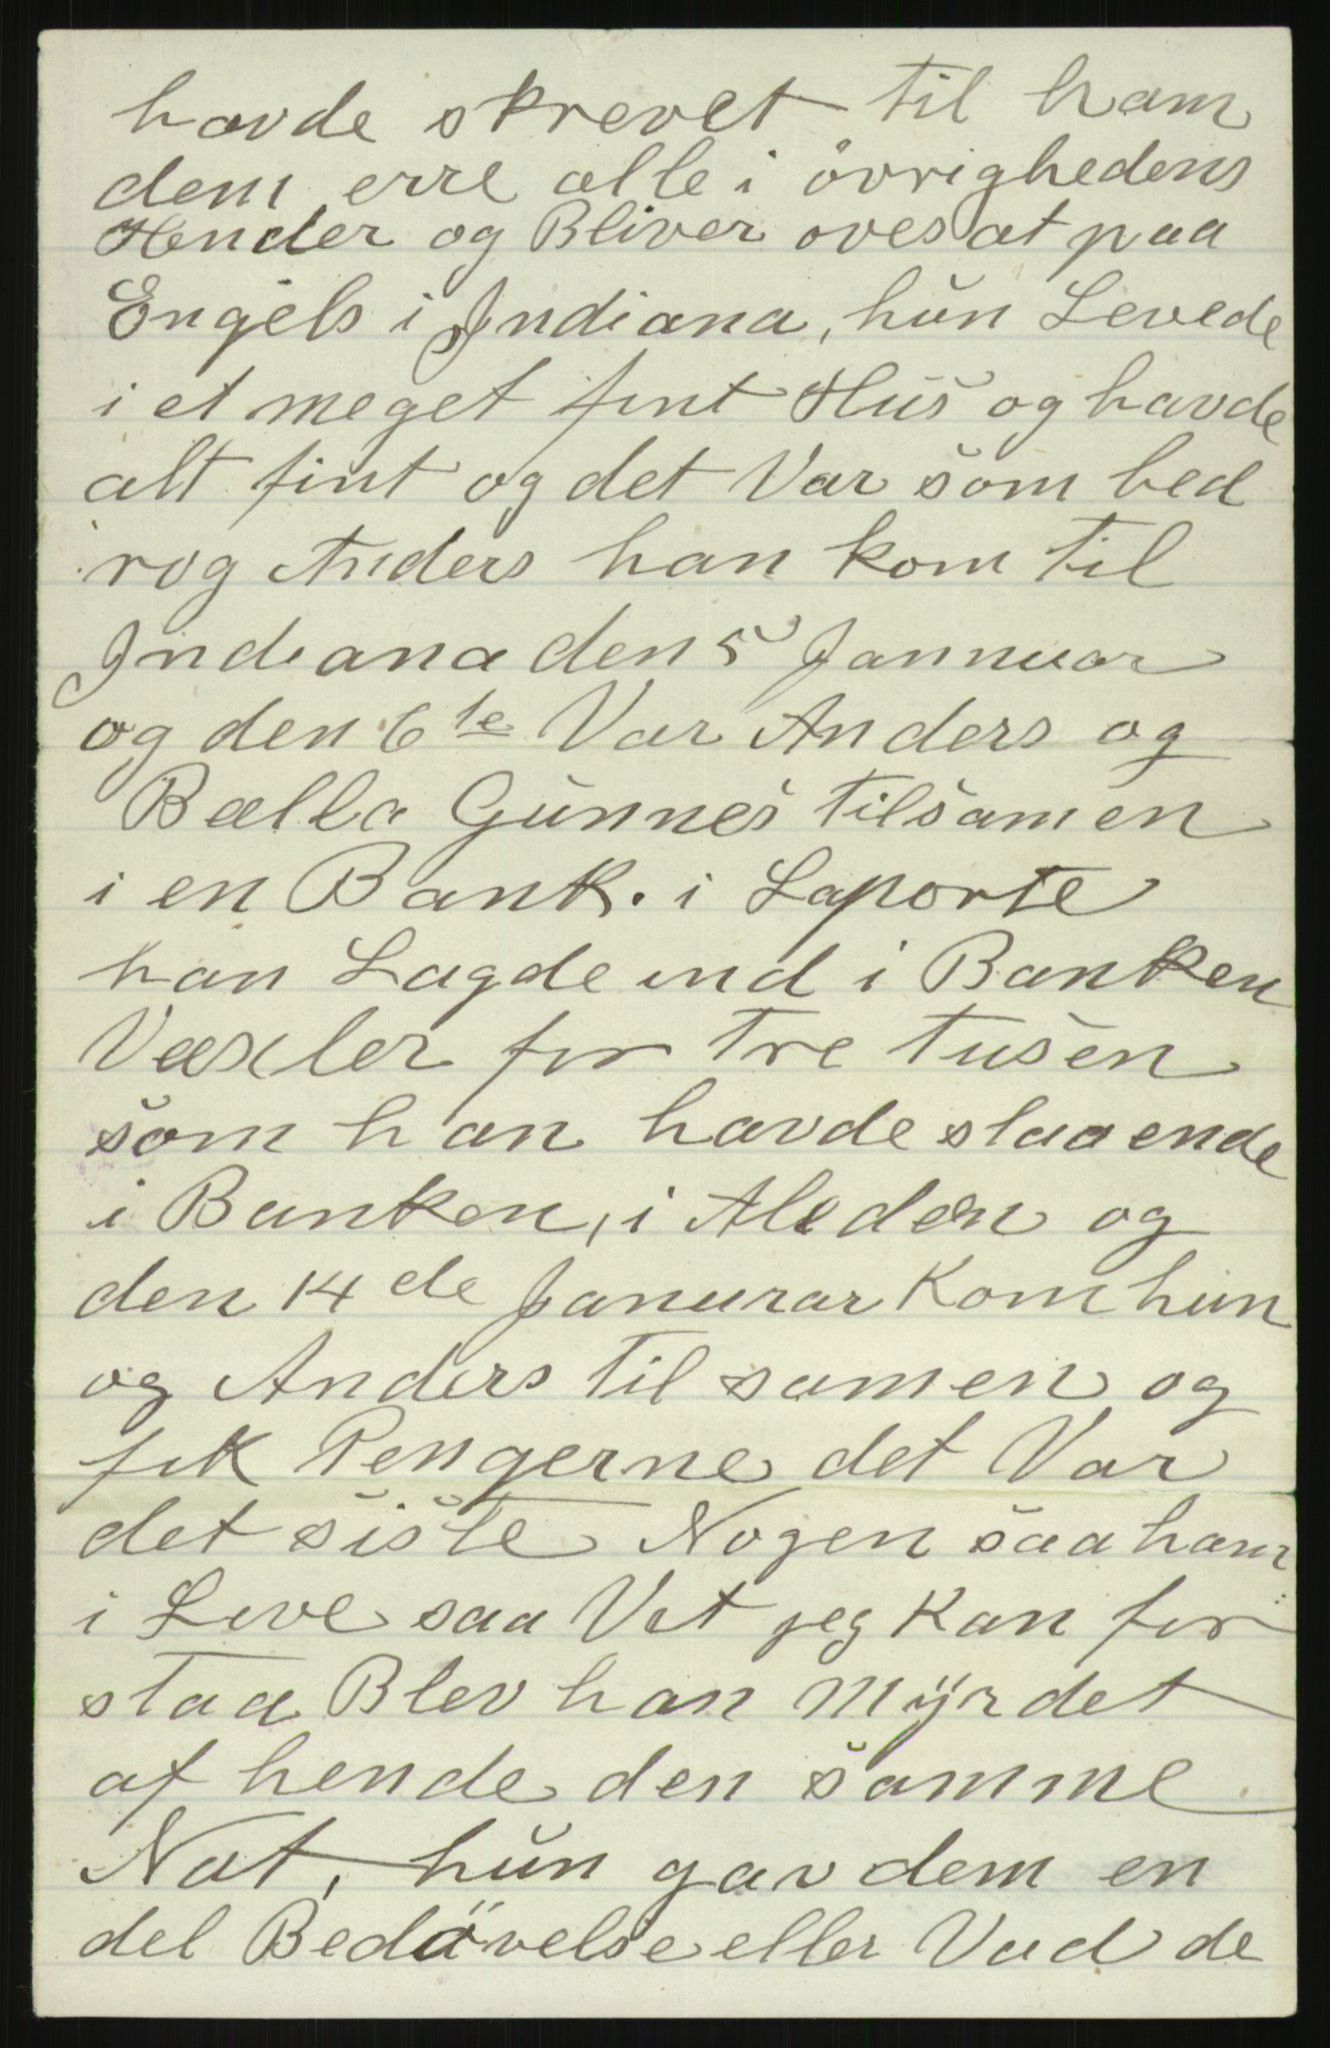 havde skrevet til ham
dem erre alle i övrighedens
Hender og Bliver ovesat paa
Engels i Indiana, hŭn Levede
i et meget fint Hŭs og havde
alt fint og det Var som bed
rog Anders han kom til
Indiana den 5 Jannuar
og den 6te Var Anders og
Bella Gŭnnes tilsamen
i en Bank. i Laporte
han Lagde ind i Banken
Vexler for tre tusen
som han havde staaende
i Banken, i Aleden og
den 14de Janurar Kom hun
og Anders til samen og
fik Pengerne det Var
det siste Nogen saa ham
i Live saa Vit jeg Kan for
staa Blev han Mÿrdet
af hende den samme
Nat, hŭn gav dem en
del Bedövelse eller Vad de